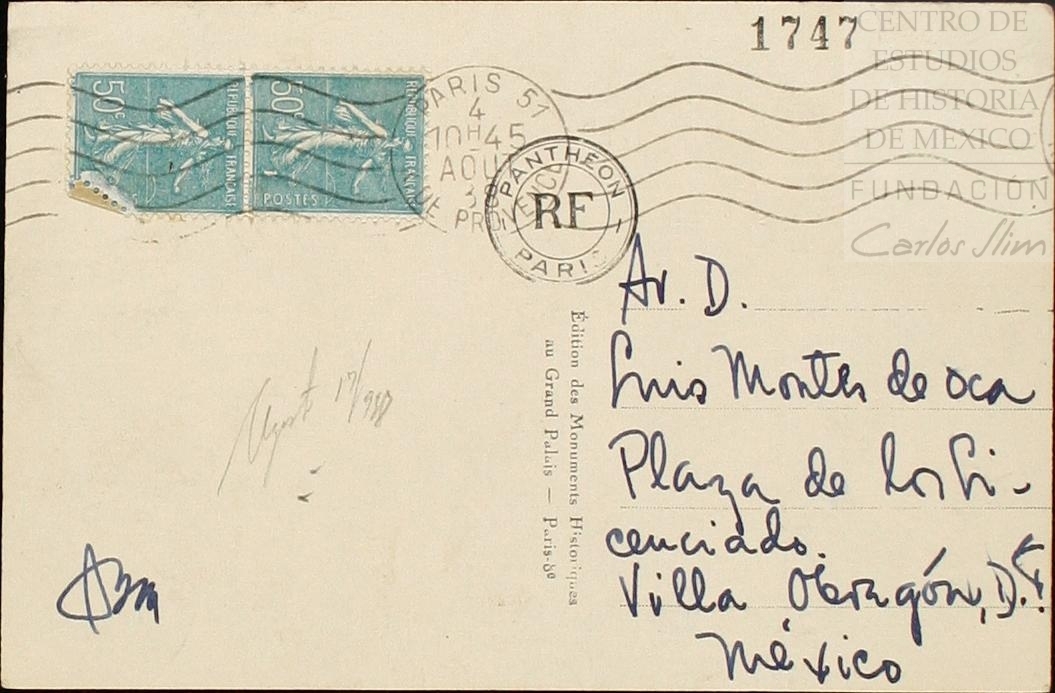 1747
CENTRO DE
ESTUDIOS
DE HISTORIA
DE MÉXICO
FUNDACIÓN
Carlos Slim
50c REPUBLIQUE FRANÇAISE
50c REPUBLIQUE FRANÇAISE
POSTES
PARIS 51
4
10H45
AOU
PANTHEON
RF
PARIS
Édition des Monuments Historiques
au Grand Palais — Paris-8e
Agosto 17/938
Av. D.
Luis Montes de oca
Plaza de los Li-
cenciado.
Villa Obregón, D.F.
México